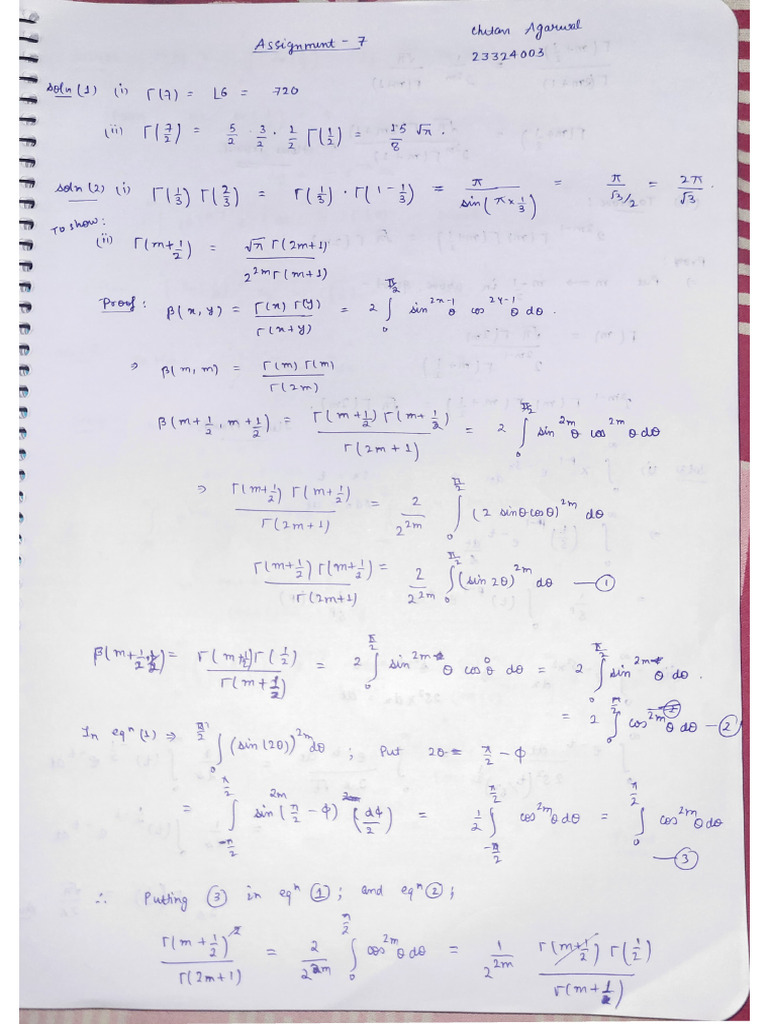 Assignment - 7
Chetan Agarwal
23324003
Soln (1) (i) Γ(7) = ⌊6 = 720
(ii) Γ(7/2) = 5/2 · 3/2 · 1/2 Γ(1/2) = 15/8 √π .
Soln (2) (i) Γ(1/3) Γ(2/3) = Γ(1/3) · Γ(1 - 1/3) = π / sin(π × 1/3) = π / √3/2 = 2π / √3 .
To show:
(ii) Γ(m + 1/2) = √π Γ(2m+1) / 2^2m Γ(m+1)
Proof: β(x, y) = Γ(x) Γ(y) / Γ(x+y) = 2 ∫_0^π/2 sin^2x-1 θ cos^2y-1 θ dθ .
⇒ β(m, m) = Γ(m) Γ(m) / Γ(2m)
β(m + 1/2, m + 1/2) = Γ(m + 1/2) Γ(m + 1/2) / Γ(2m + 1) = 2 ∫_0^π/2 sin^2m θ cos^2m θ dθ
⇒ Γ(m + 1/2) Γ(m + 1/2) / Γ(2m+1) = 2 / 2^2m ∫_0^π/2 (2 sinθ cosθ)^2m dθ
Γ(m + 1/2) Γ(m + 1/2) / Γ(2m+1) = 2 / 2^2m ∫_0^π/2 (sin 2θ)^2m dθ — ①
β(m + 1/2, 1/2) = Γ(m + 1/2) Γ(1/2) / Γ(m + 1) = 2 ∫_0^π/2 sin^2m θ cos^0 θ dθ = 2 ∫_0^π/2 sin^2m θ dθ .
= 2 ∫_0^π/2 cos^2m θ dθ — ②
In eqn (1) ⇒ ∫_0^π/2 (sin(2θ))^2m dθ ; Put 2θ = π/2 - ϕ
= ∫_-π/2^π/2 sin^2m (π/2 - ϕ) (dϕ/2) = 1/2 ∫_-π/2^π/2 cos^2m θ dθ = ∫_0^π/2 cos^2m θ dθ
— ③
∴ Putting ③ in eqn ①; and eqn ②;
Γ(m + 1/2)^2 / Γ(2m+1) = 2 / 2^2m ∫_0^π/2 cos^2m θ dθ = 1 / 2^2m Γ(m + 1/2) Γ(1/2) / Γ(m + 1)